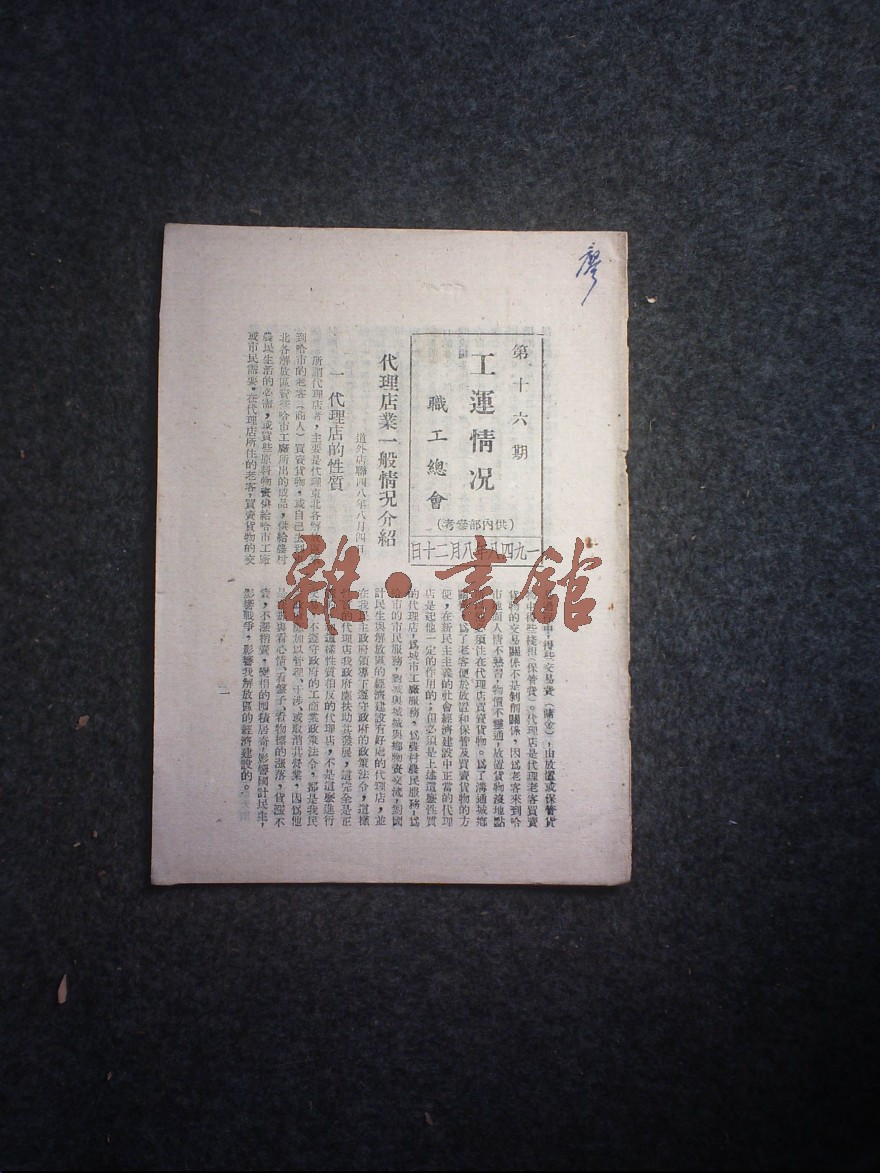 廖
第十六期
工運情況
職工總會
(供內部參考)
一九四八年八月二十日
代理店業一般情況介紹
道外店聯四八年八月四日
一 代理店的性質
所謂代理店者，主要是代理東北各解放
到哈市的老客（商人）買賣貨物，或自己去到
北各解放區賣些哈市工廠所出的成品，供給農村
農民生活的必需，或買些原料物資供給哈市工廠
或市民需要。在代理店所住的老客，買賣貨物的交
中得些交易費（佣金），由放置或保管貨
中得些棧租（保管費）。代理店是代理老客買賣
貨物的交易關係不是剝削關係，因為老客來到哈
市地面人情不熟習，物價不靈通，放置貨物沒地點
必須住在代理店買賣貨物。為了溝通城鄉
為了老客便於放置和保管及買賣貨物的方
便，在新民主主義的社會經濟建設中正當的代理
店是起他一定的作用的；但必須是上述這麼性質
的代理店，為城市工廠服務，為農村農民服務，為
哈市的市民服務，對城與城城與鄉物資交流，對國
計民生與解放區的經濟建設有好處的代理店，並
在我民主政府領導下遵守政府的政策法令，這樣
的代理店我政府應扶助其發展，這完全是正
這樣性質相反的代理店，不是這麼進行
不遵守政府的工商業政策法令，都是我民
加以管理、干涉、或取消其營業，因為他
看心情、看盤子、看物標的漲落，貨漲不
賣，不漲稍賣，變相的囤積居奇，影響國計民生，
影響戰爭，影響我解放區的經濟建設的。
一
雜·書館